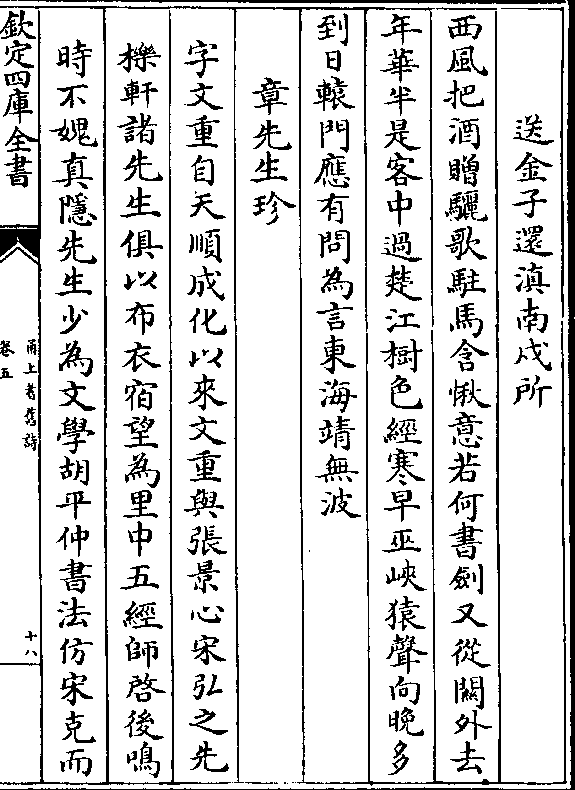 送金子還滇南戍所
西風把酒贈驪歌駐馬含愀意若何書劍又從關外去
年華半是客中過楚江樹色經寒早巫峽猿聲向晚多
到日轅門應有問為言東海靖無波
章先生珍
字文重自天順成化以來文重與張景心宋弘之先
櫟軒諸先生俱以布衣宿望為里中五經師啓後鳴
時不媿真隱先生少為文學胡平仲書法仿宋克而
欽定四庫全書
甬上耆舊詩
卷五
十八